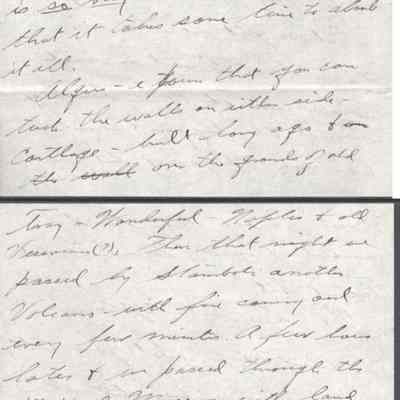 is so
that it takes some time to absorb
it all.
Algiers - a town that you can
touch the walls on either side -
Carthage - built long ago & on
the wall over the grounds of old
Troy - Wonderful - Naples & old
Vesuvius (?). Then that night we
passed by Stromboli another
Volcano - with fire coming out
every few minutes. A few hours
later & we passed through the
of with land